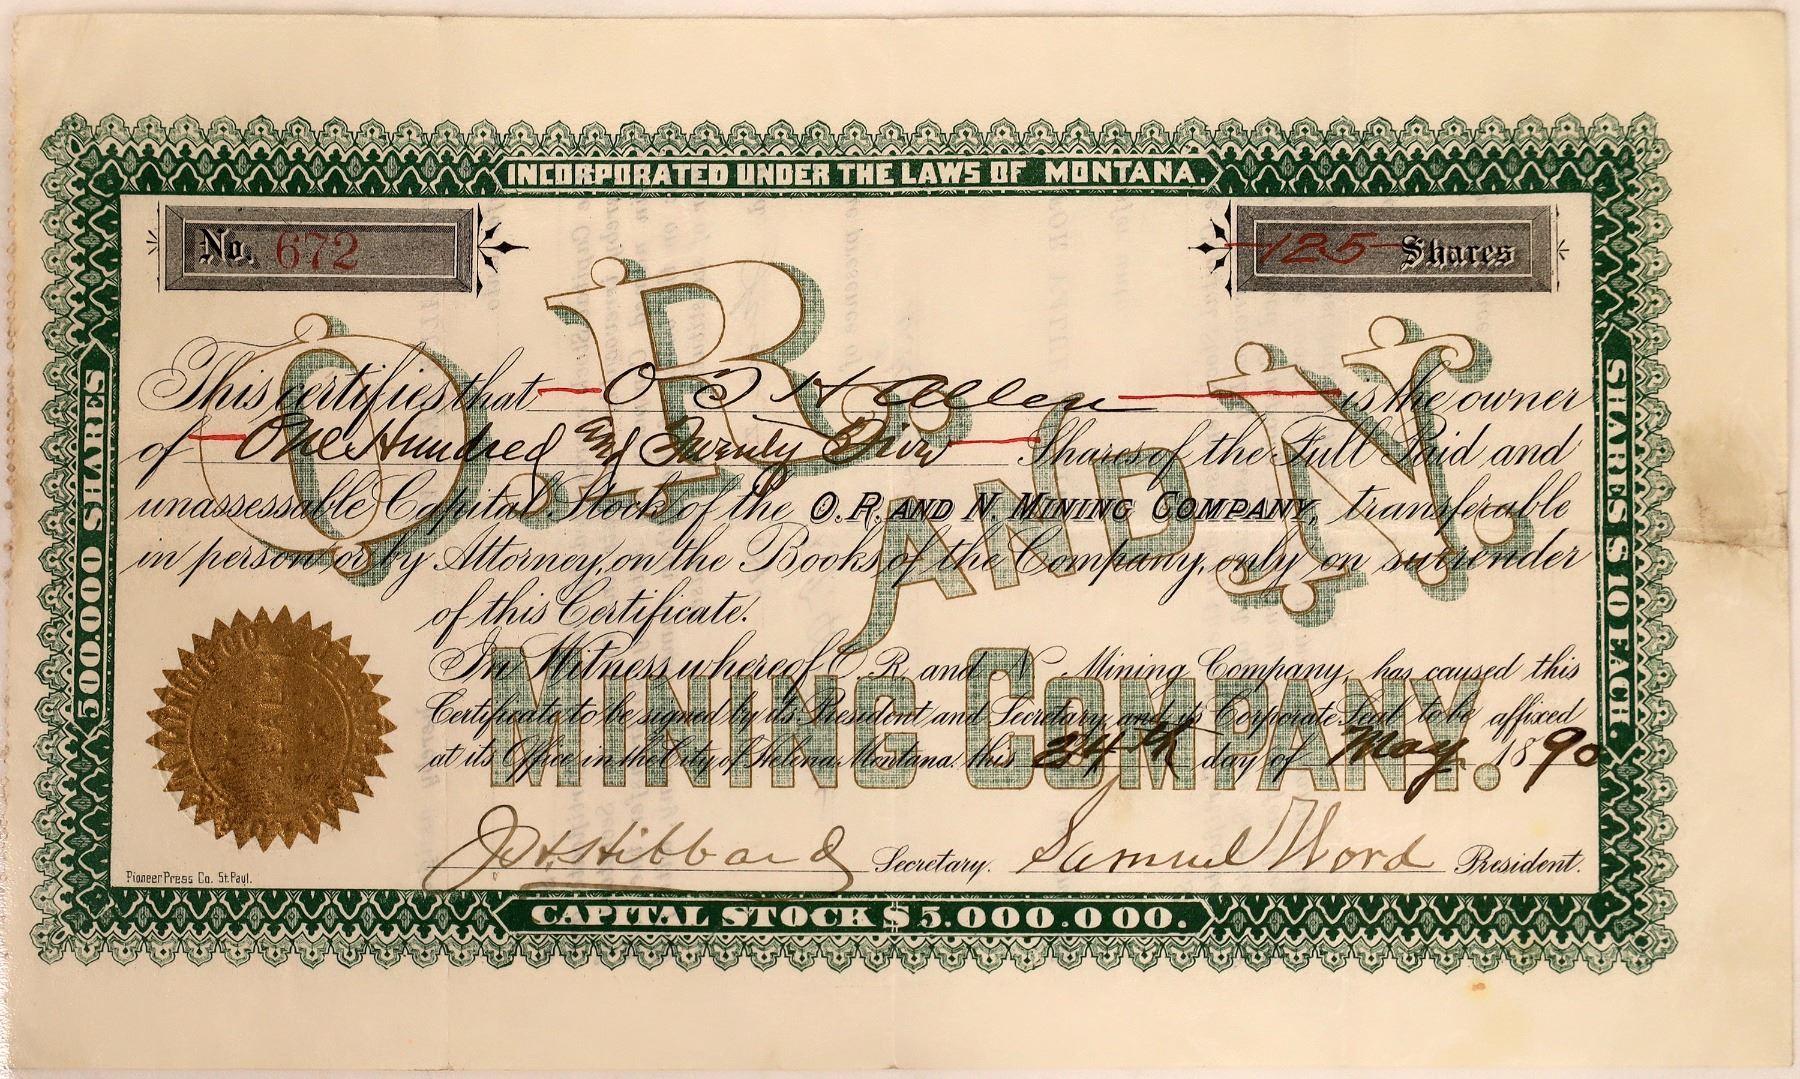 INCORPORATED UNDER THE LAWS OF MONTANA.
No. 672
125 Shares
O. R. AND N. MINING COMPANY.
This certifies that O S H Allen is the owner
of One Hundred and Twenty Five Shares of the Full Paid and
unassessable Capital Stock of the O. R. AND N MINING COMPANY, transferable
in person or by Attorney, on the Books of the Company, only on surrender
of this Certificate.
In Witness whereof O. R. and N Mining Company, has caused this
Certificate to be signed by its President and Secretary and its Corporate Seal to be affixed
at its Office in the City of Helena, Montana. this 24th day of May 1890
Hibbard Secretary. Samuel Word President.
Pioneer Press Co. St. Paul.
500.000 SHARES
SHARES $10 EACH.
CAPITAL STOCK $5.000.000.